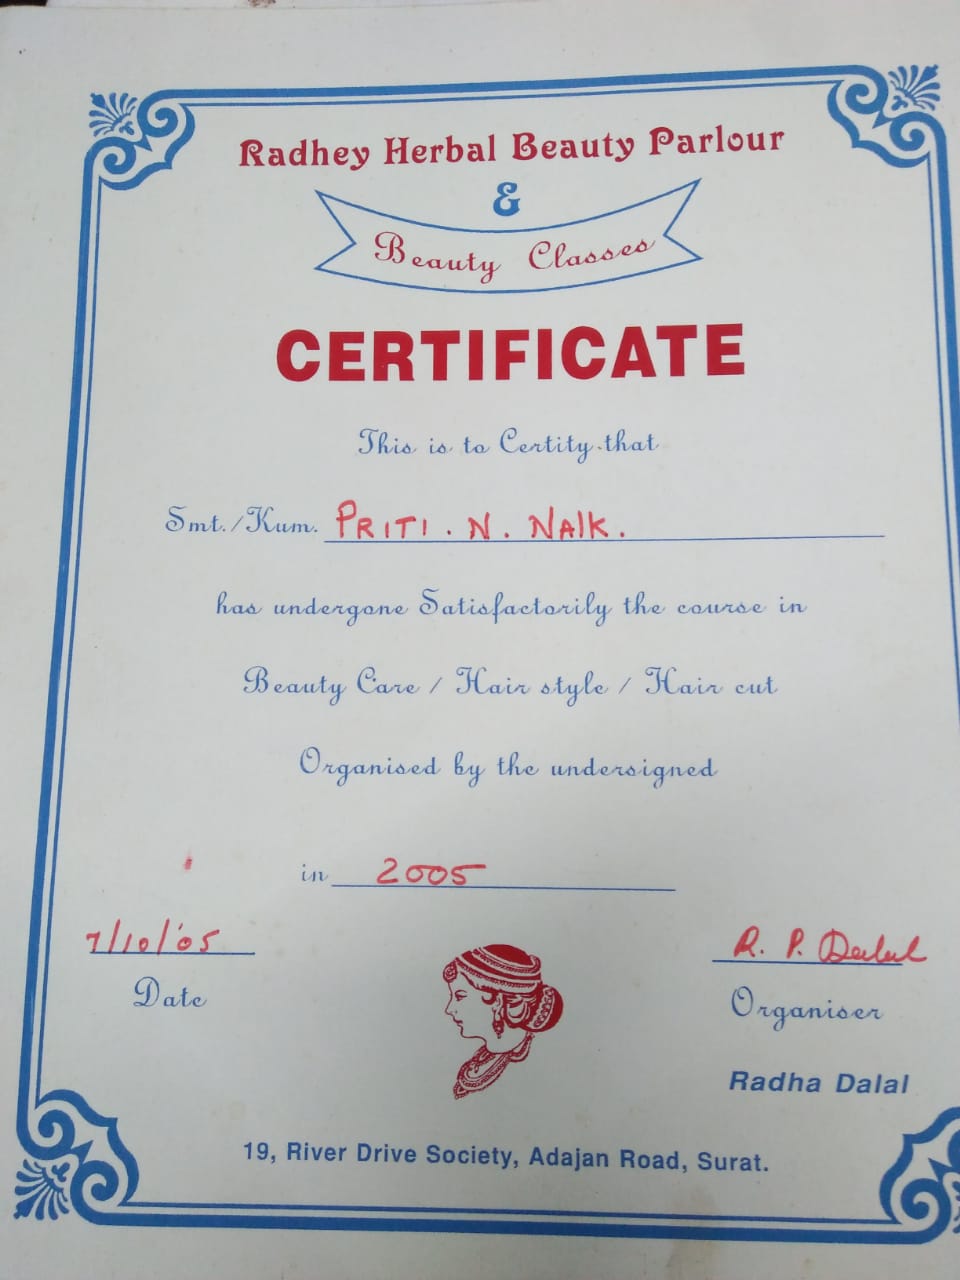 Radhey Herbal Beauty Parlour
&
Beauty Classes
CERTIFICATE
This is to Certity that
Smt./Kum. PRITI . N. NAIK.
has undergone Satisfactorily the course in
Beauty Care / Hair style / Hair cut
Organised by the undersigned
in 2005
7/10/'05
R. P. Dalal
Date
Organiser
Radha Dalal
19, River Drive Society, Adajan Road, Surat.